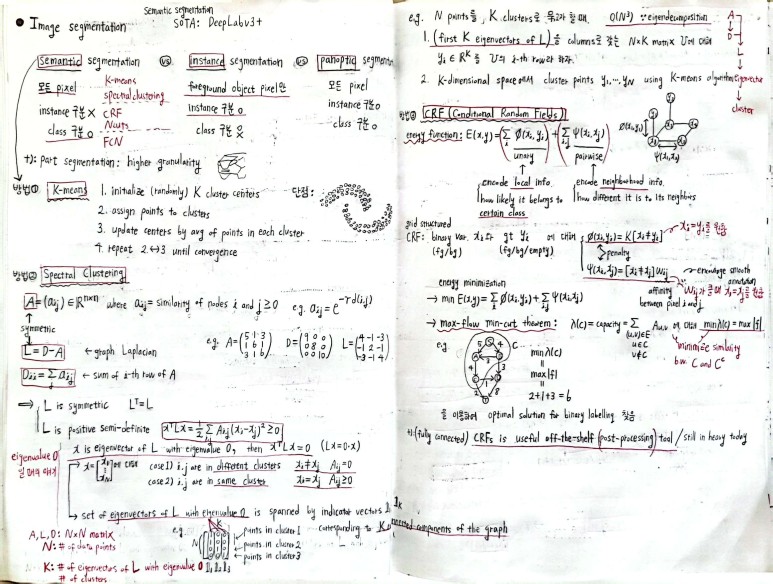 Semantic segmentation
• Image segmentation SOTA: DeepLabv3+
semantic segmentation vs instance segmentation vs panoptic segmentation
모든 pixel
instance 구분 X
class 구분 o
K-means
spectral clustering
CRF
Ncuts
FCN
foreground object pixel만
instance 구분 o
class 구분
모든 pixel
instance 구분 o
class 구분 o
+): part segmentation: higher granularity
방법① K-means
1. initialize (randomly) K cluster centers
단점:
2. assign points to clusters
3. update centers by avg of points in each cluster
4. repeat 2↔3 until convergence
방법② Spectral Clustering
A = (aij) ∈ R^{n×n} where aij = similarity of nodes i and j ≥ 0 e.g. aij = e^{-γd(i,j)}
symmetric
L = D-A ← graph Laplacian
e.g. A = (5 1 3 / 1 6 1 / 3 1 6) D = (9 0 0 / 0 8 0 / 0 0 10) L = (4 -1 -3 / -1 2 -1 / -3 -1 4)
Dii = Σj aij ← sum of i-th row of A
⇒ L is symmetric L^T = L
L is positive semi-definite x^T L x = 1/2 Σ Aij (xi-xj)² ≥ 0
x is eigenvector of L with eigenvalue 0, then x^T L x = 0 (Lx = 0·x)
eigenvalue 0
case1) i,j are in different clusters xi ≠ xj Aij = 0
case2) i,j are in same cluster xi = xj Aij ≥ 0
→ set of eigenvectors of L with eigenvalue 0 is spanned by indicator vectors 1₁ 1k
corresponding to K connected components of the graph
A, L, D: N×N matrix
N: # of data points
K: # of eigenvectors of L with eigenvalue 0
# of clusters
e.g.
K
N
points in cluster 1
points in cluster 2
points in cluster 3
1₁ 1₂ 1₃
e.g. N points를, K clusters로 묶고자 할 때, O(N³) ∵ eigendecomposition
1. (first K eigenvectors of L)을 columns로 갖는 N×K matrix U에 대해
yi ∈ R^K 를 U의 i-th row라 하자.
2. K-dimensional space에서 cluster points y1, ..., yN using K-means algorithm
A
D
L
eigenvector
cluster
방법③ CRF (Conditional Random Fields)
energy function: E(x,y) = Σi ø(xi,yi) + Σij ψ(xi,xj)
unary
pairwise
ø(xi,yi)
ψ(xi,xj)
encode local info.
how likely it belongs to
certain class
encode neighborhood info.
how different it is to its neighbors
grid structured
CRF: binary var. xi와 gt yi 에 대해
(fg/bg) (fg/bg/empty)
ø(xi,yi) = K[xi≠yi]
penalty
ψ(xi,xj) = [xi≠xj] wij
affinity
between pixel i and j
encourage smooth
annotation
energy minimization
→ min E(x,y) = Σi ø(xi,yi) + Σij ψ(xi,xj)
→ max-flow min-cut theorem: λ(c) = capacity = Σ Au,v 에 대해 min λ(c) = max|f|
(u,v)∈E
u∈C
v∉C
minimize similarity
b.w. C and C^c
e.g.
C
min λ(c)
=
max|f|
=
2+1+3 = 6
을 이용하여 optimal solution for binary labelling 찾음
+) (fully connected) CRFs is useful off-the-shelf (post-processing) tool / still in heavy today